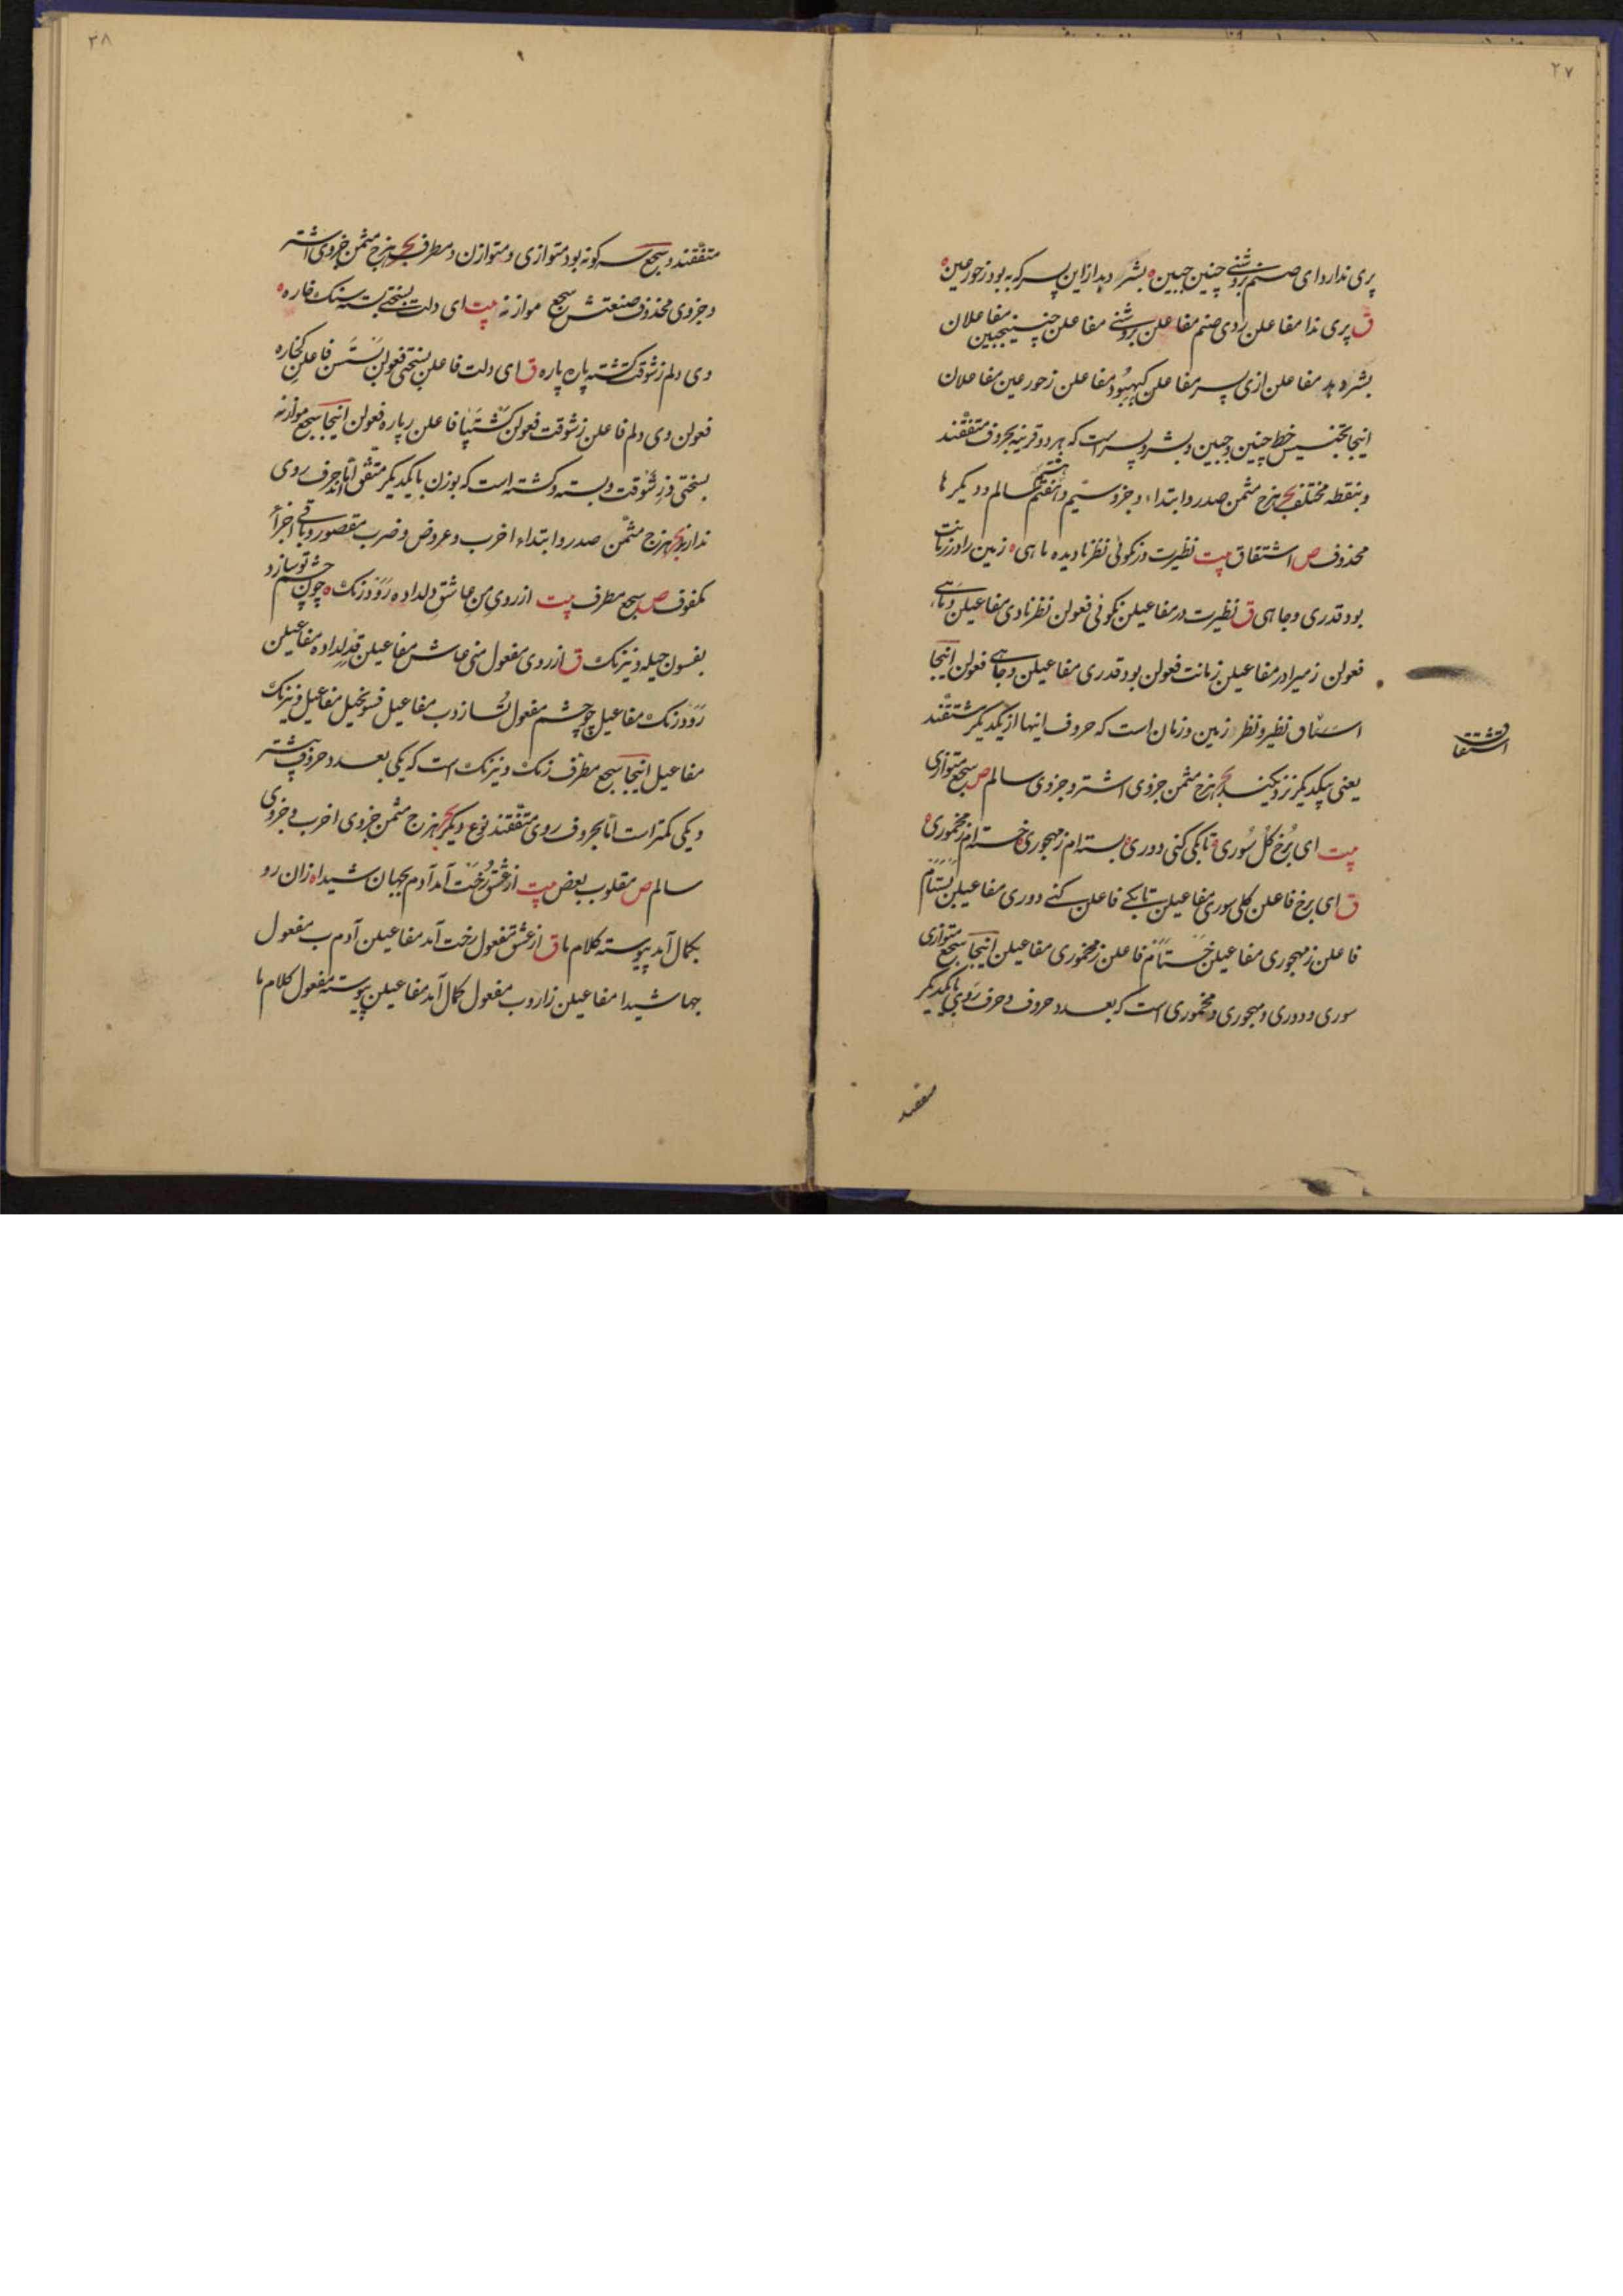 ۲۷
پری ندارد ای صنم بروشنی چنین جبین ه بشر دید از این پسر که به بود ز حور عین ه
ق پری ندا مفاعلن ردی صنم مفاعلن بروشنی مفاعلن چنینجبین مفاعلان
بشر مفاعلن ازی پسر مفاعلن کبهبود مفاعلن ز حور عین مفاعلان
اینجا تجنیس خط چنین و جبین و بشر و پسر است که هر دو قرینه بحروف متفقند
و بنقطه مختلف بحر هزج مثمن صدر و ابتداء و جزو سیم و هفتم سالم و دیکرها
محذوف ص اشتقاق بیت نظیرت در نکوئی نظر نادیده ماهی ه زمین را در زمانت
بود قدری و جاهی ق نظیرت در مفاعیلن نکوئی فعولن نظر نادی مفاعیلن دماهی
فعولن زمیرا در مفاعیلن زمانت فعولن بود قدری مفاعیلن و جاهی فعولن اینجا
اشتقاق نظیر و نظر و زمین و زمان است که حروف اینها از یکدیکر مشتقند
اشتقاق
یعنی بیکدیکر نزدیکند بحر هزج مثمن جزوی اشتر و جزوی سالم ص سجع متوازی
بیت ای برخ کل سوری تا بکی کنی دوری بسته ام ز مهجوری خسته ام ز مخموری ه
ق ای برخ فاعلن کلی سوری مفاعیلن تا بکے فاعلن کنے دوری مفاعیلن بستام
فاعلن ز مهجوری مفاعیلن خستام فاعلن ز مخموری مفاعیلن اینجا سجع متوازی
سوری و دوری و مهجوری و مخموری است که بعدد حروف و حرف روی با یکدیکر
متفقند
۲۸
متفقند و سجع سه کونه بود متوازی و متوازن و مطرف بحر هزج مثمن جزوی اشتر
و جزوی محذوف صنعتش سجع موازنه بیت ای دلت بسختی بسته سنک خاره ه
وی دلم ز شوقت کشته پاره پاره ق ای دلت فاعلن بسختی فعولن بستسن فاعلن کخاره
فعولن وی دلم فاعلن ز شوقت فعولن کشتپا فاعلن رپاره فعولن اینجا سجع موازنه
بسختی و ز شوقت و بسته و کشته است که بوزن با یکدیکر متفق اند اما حرف روی
ندارند بحر هزج مثمن صدر و ابتداء اخرب و عروض و ضرب مقصور و باقی اجزاء
مکفوف ص سجع مطرف بیت از روی من عاشق دلداده رود زنک ه چون چشم تو سازد
بفسون حیله و نیرنک ق از روی مفعول منی عاش مفاعیلن قدلداده مفاعیلن
رود زنک مفاعیل چو چشم مفعول تسازدب مفاعیل فسونحیل مفاعیل و نیرنک
مفاعیل اینجا سجع مطرف زنک و نیرنک است که یکی بعدد حروف بیشتر
و یکی کمتر است اما بحروف روی متفقند نوع دیکر بحر هزج مثمن جزوی اخرب و جزوی
سالم ص مقلوب بعض بیت از عشق رخت آمد آدم بجهان شیدا ه زان رو
بکمال آمد پیوسته کلام ما ق از عشق مفعول رخت آمد مفاعیلن آدم ب مفعول
جها شیدا مفاعیلن زاروب مفعول کمال آمد مفاعیلن پیوسته مفعول کلام ما